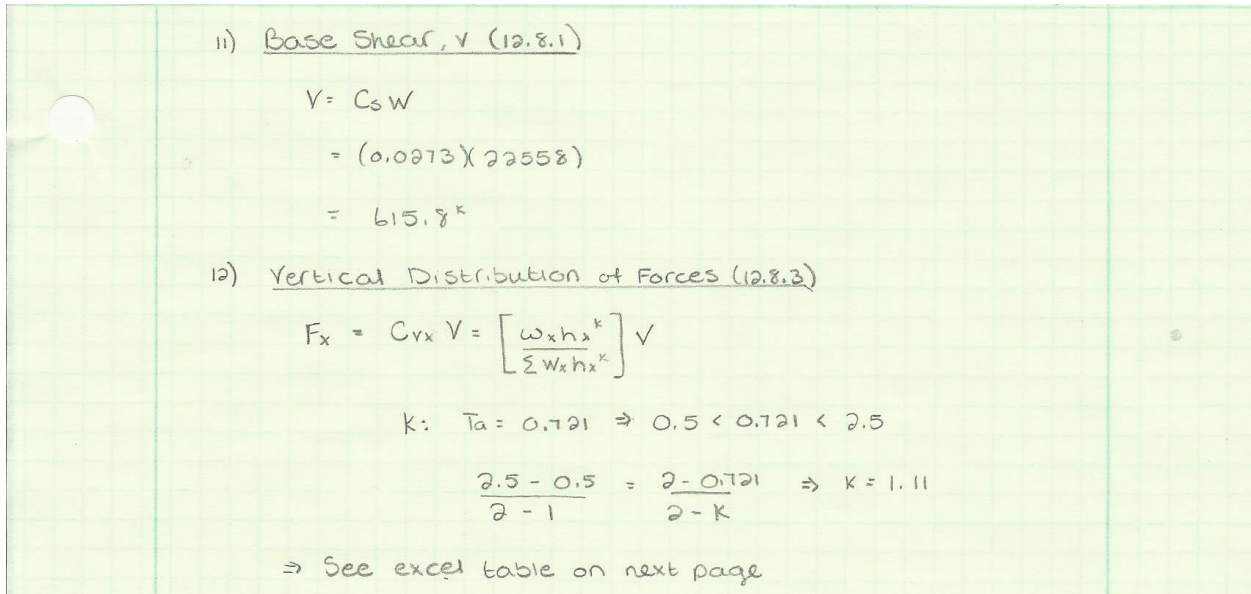 11) Base Shear, V (12.8.1)
V = Cs W
= (0.0273)(22558)
= 615.8 ᵏ
12) Vertical Distribution of Forces (12.8.3)
Fx = Cvx V = [ wxhxᵏ / Σ wxhxᵏ ] V
K: Ta = 0.721 ⇒ 0.5 < 0.721 < 2.5
2.5 - 0.5 / 2 - 1 = 2 - 0.721 / 2 - K ⇒ K = 1.11
⇒ See excel table on next page